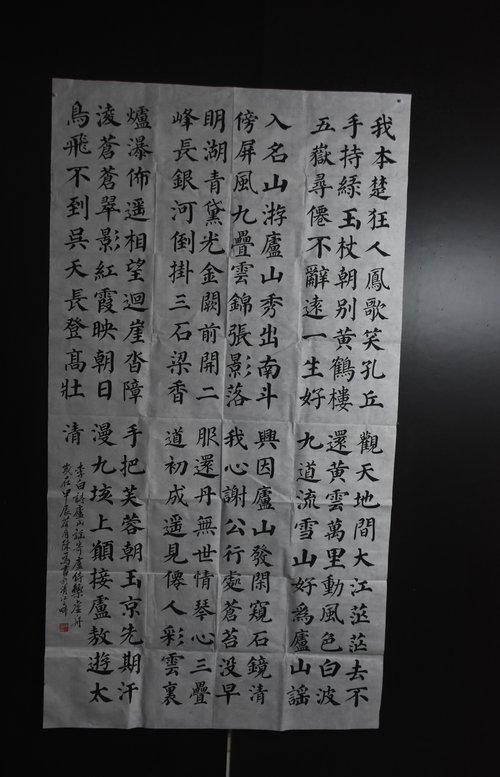 我本楚狂人鳳歌笑孔丘
手持緑玉杖朝别黄鶴樓
五嶽尋僊不辭逺一生好
入名山游廬山秀出南斗
傍屏風九疊雲錦張影落
明湖青黛光金闕前開二
峰長銀河倒掛三石梁香
爐瀑佈遥相望迴崖沓障
凌蒼蒼翠影紅霞映朝日
鳥飛不到吳天長登高壯
觀天地間大江茫茫去不
還黄雲萬里動風色白波
九道流雪山好為廬山謡
興因廬山發閑窺石鏡清
我心謝公行處蒼苔没早
服還丹無世情琴心三疊
道初成遥見僊人彩雲裏
手把芙蓉朝玉京先期汗
漫九垓上願接盧敖遊太
清
李白詩廬山謡寄盧侍御虛舟
歲在甲辰